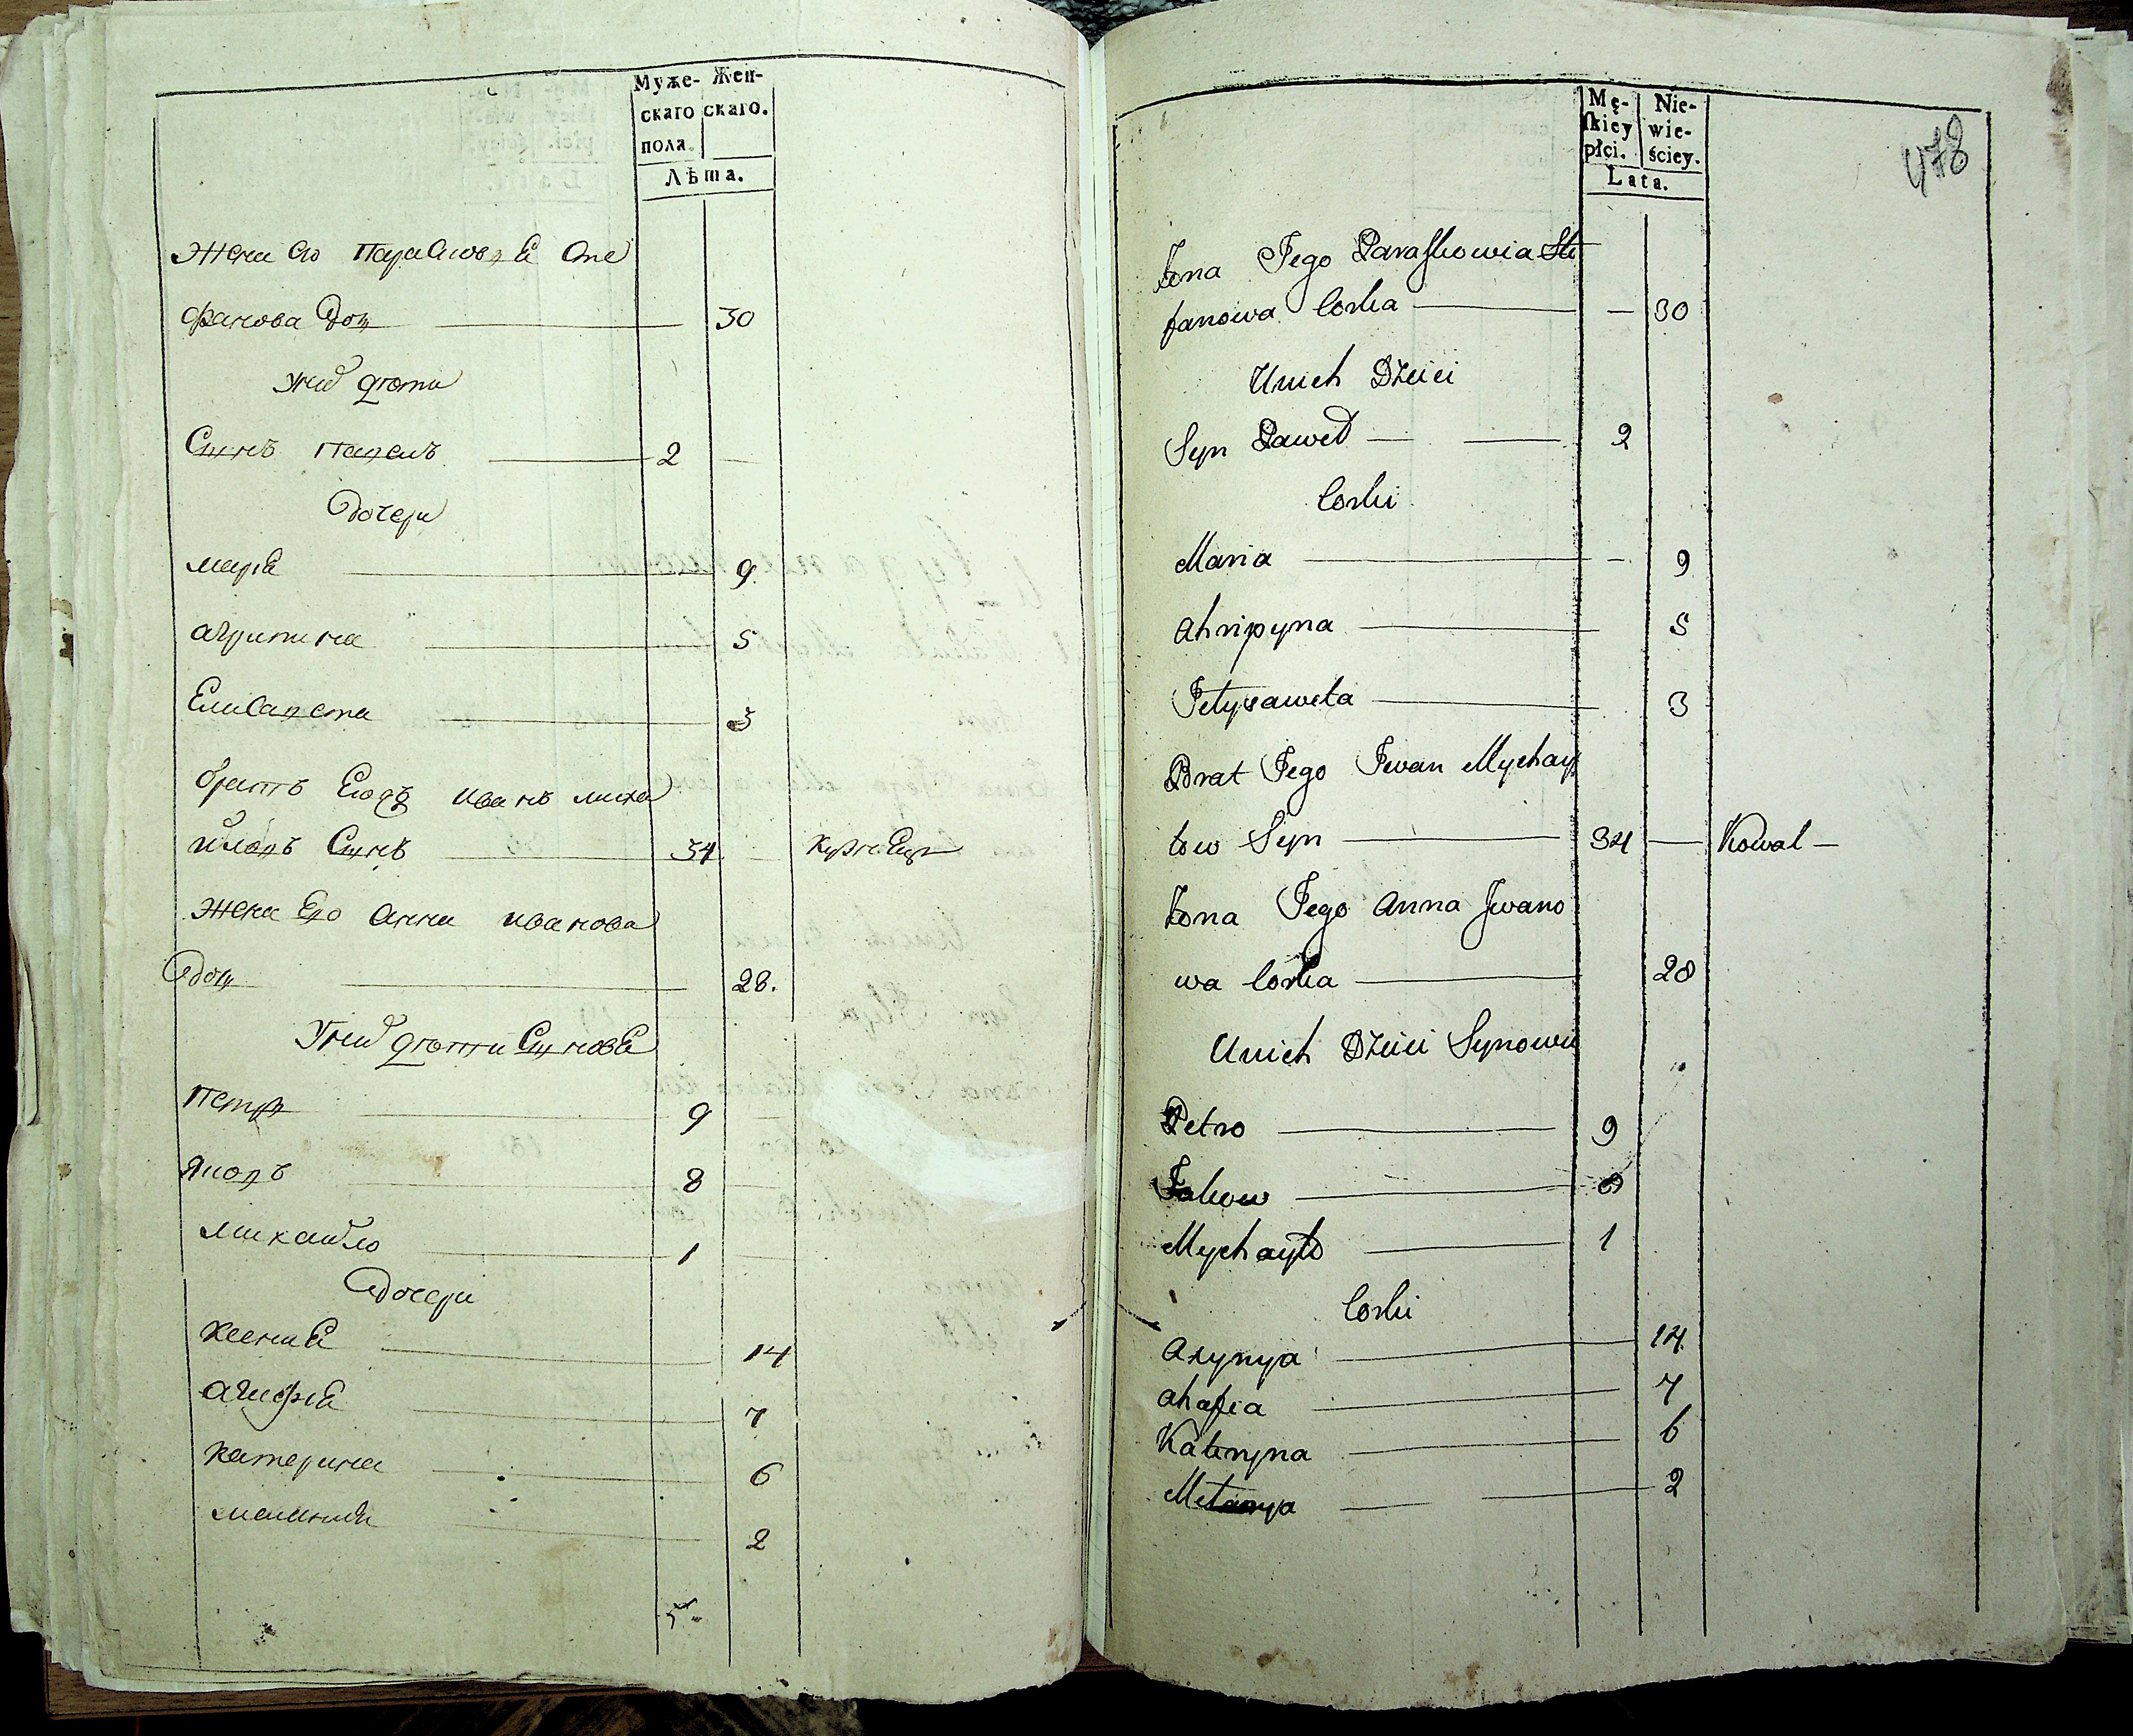 Муже- Жен-
скаго скаго.
пола.
Лѣта.
Жена его Парасковья Сте
фанова доч 30
у них дети
Сынъ Павелъ 2
Дочери
Марья 9
Агрипина 5
Елисавета 3
братъ Иванъ Миха
йловъ Сынъ 34 Кузнец
Жена Его Анна Иванова
доч 28.
У них дети Сыновья
Петр 9
Яковъ 8
Михайло 1
Дочери
Ксения 14
Агафья 7
Катерина 6
2
5
Mę- Nie-
skiey wie-
płci. ściey.
Lata.
478
Żona Jego Paraskowia Ste
fanowa Corka — 30
Unich Dzieci
Syn Paweł 2
Corki
Maria 9
Ahripyna 5
Jełysaweta 3
Brat Jego Iwan Mychay
łow Syn 34 — Kowal —
Żona Jego Anna Iwano
wa Corka 28
Unich Dzieci Synowie
Petro 9
Jakow 8
Mychayło 1
Corki
Axynya 14
Ahafia 7
Kateryna 6
Mełanya 2